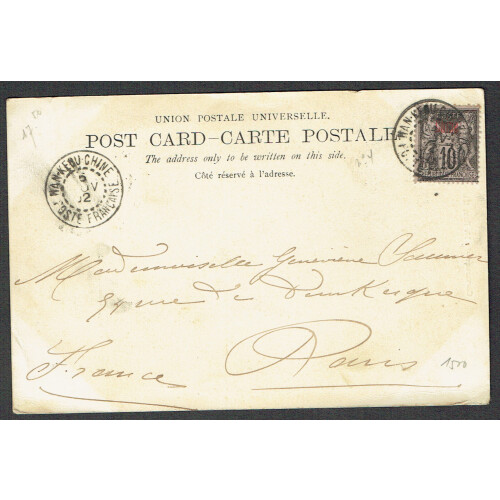 UNION POSTALE UNIVERSELLE.
POST CARD—CARTE POSTALE
The address only to be written on this side.
Côté réservé à l'adresse.
HAN-KEOU-CHINE
5
02
POSTE FRANÇAISE
HAN-KEOU
10
Mademoiselle Geneviève
rue de Dunkerque
Paris
France
1500